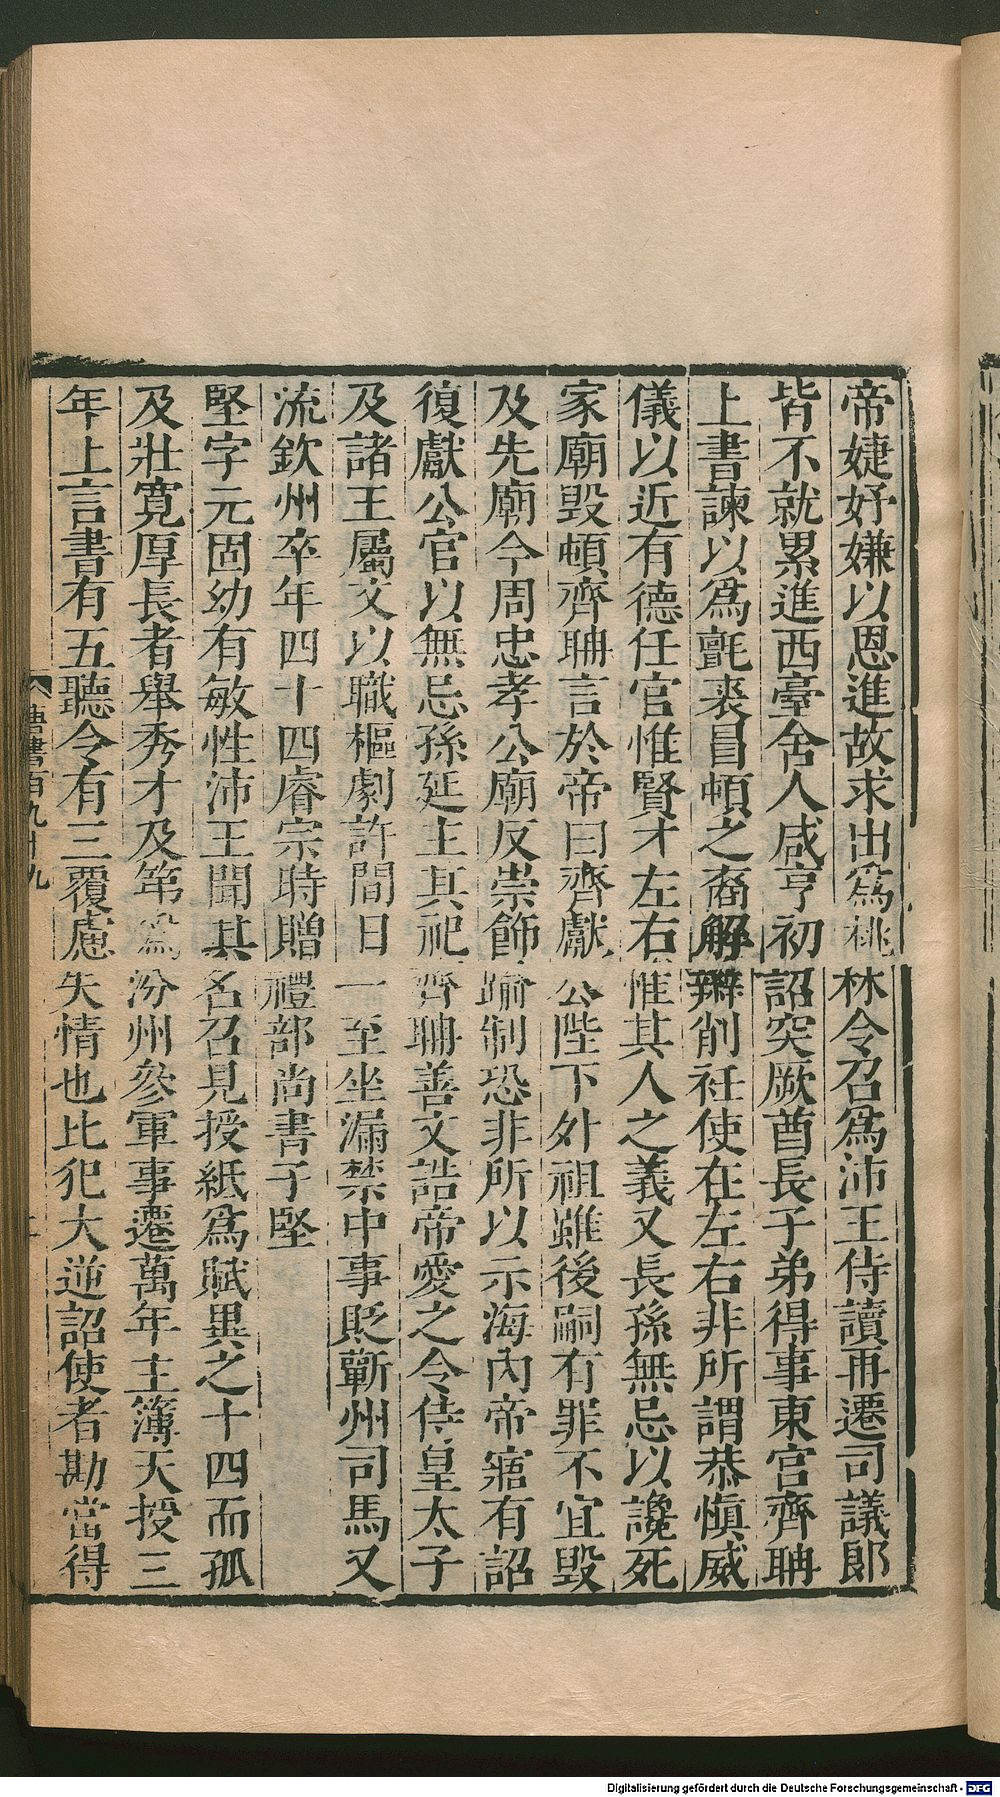 帝婕妤嫌以恩進故求出爲桃林令召爲沛王侍讀再遷司議郎
皆不就累進西臺舍人咸亨初詔突厥酋長子弟得事東宮齊聃
上書諫以爲氈裘冒頓之裔解辮削衽使在左右非所謂恭愼威
儀以近有德任官惟賢才左右惟其人之義又長孫無忌以讒死
家廟毀頓齊聃言於帝曰齊獻公陛下外祖雖後嗣有罪不宜毀
及先廟今周忠孝公廟反崇飾踰制恐非所以示海內帝寤有詔
復獻公官以無忌孫延主其祀齊聃善文誥帝愛之令侍皇太子
及諸王屬文以職樞劇許間日一至坐漏禁中事貶蘄州司馬又
流欽州卒年四十四睿宗時贈禮部尚書子堅
堅字元固幼有敏性沛王聞其名召見授紙爲賦異之十四而孤
及壯寬厚長者舉秀才及第爲汾州參軍事遷萬年主簿天授三
年上言書有五聽令有三覆慮失情也比犯大逆詔使者勘當得
唐書百九十九
Digitalisierung gefördert durch die Deutsche Forschungsgemeinschaft - DFG